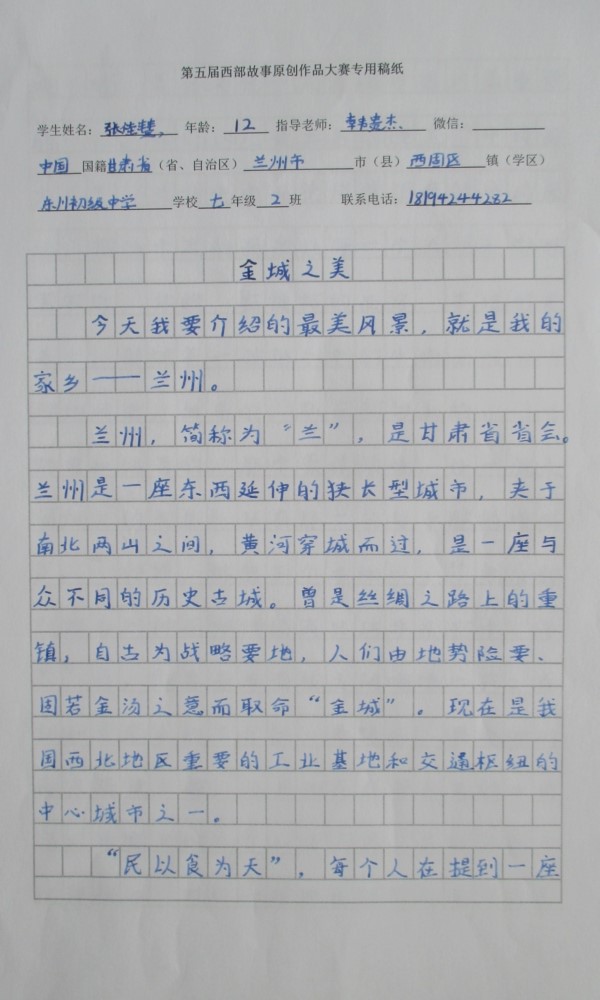 第五届西部故事原创作品大赛专用稿纸
学生姓名：张佳慧，年龄：12 指导老师：李 杰、微信：
中国国籍甘肃省（省、自治区）兰州市市（县）西固区镇（学区）
东川初级中学学校七年级2班 联系电话：18194244282
金城之美
今天我要介绍的最美风景，就是我的
家乡——兰州。
兰州，简称为“兰”，是甘肃省省会。
兰州是一座东西延伸的狭长型城市，夹于
南北两山之间，黄河穿城而过，是一座与
众不同的历史古城。曾是丝绸之路上的重
镇，自古为战略要地，人们由地势险要、
固若金汤之意而取命“金城”。现在是我
国西北地区重要的工业基地和交通枢纽的
中心城市之一。
“民以食为天”，每个人在提到一座